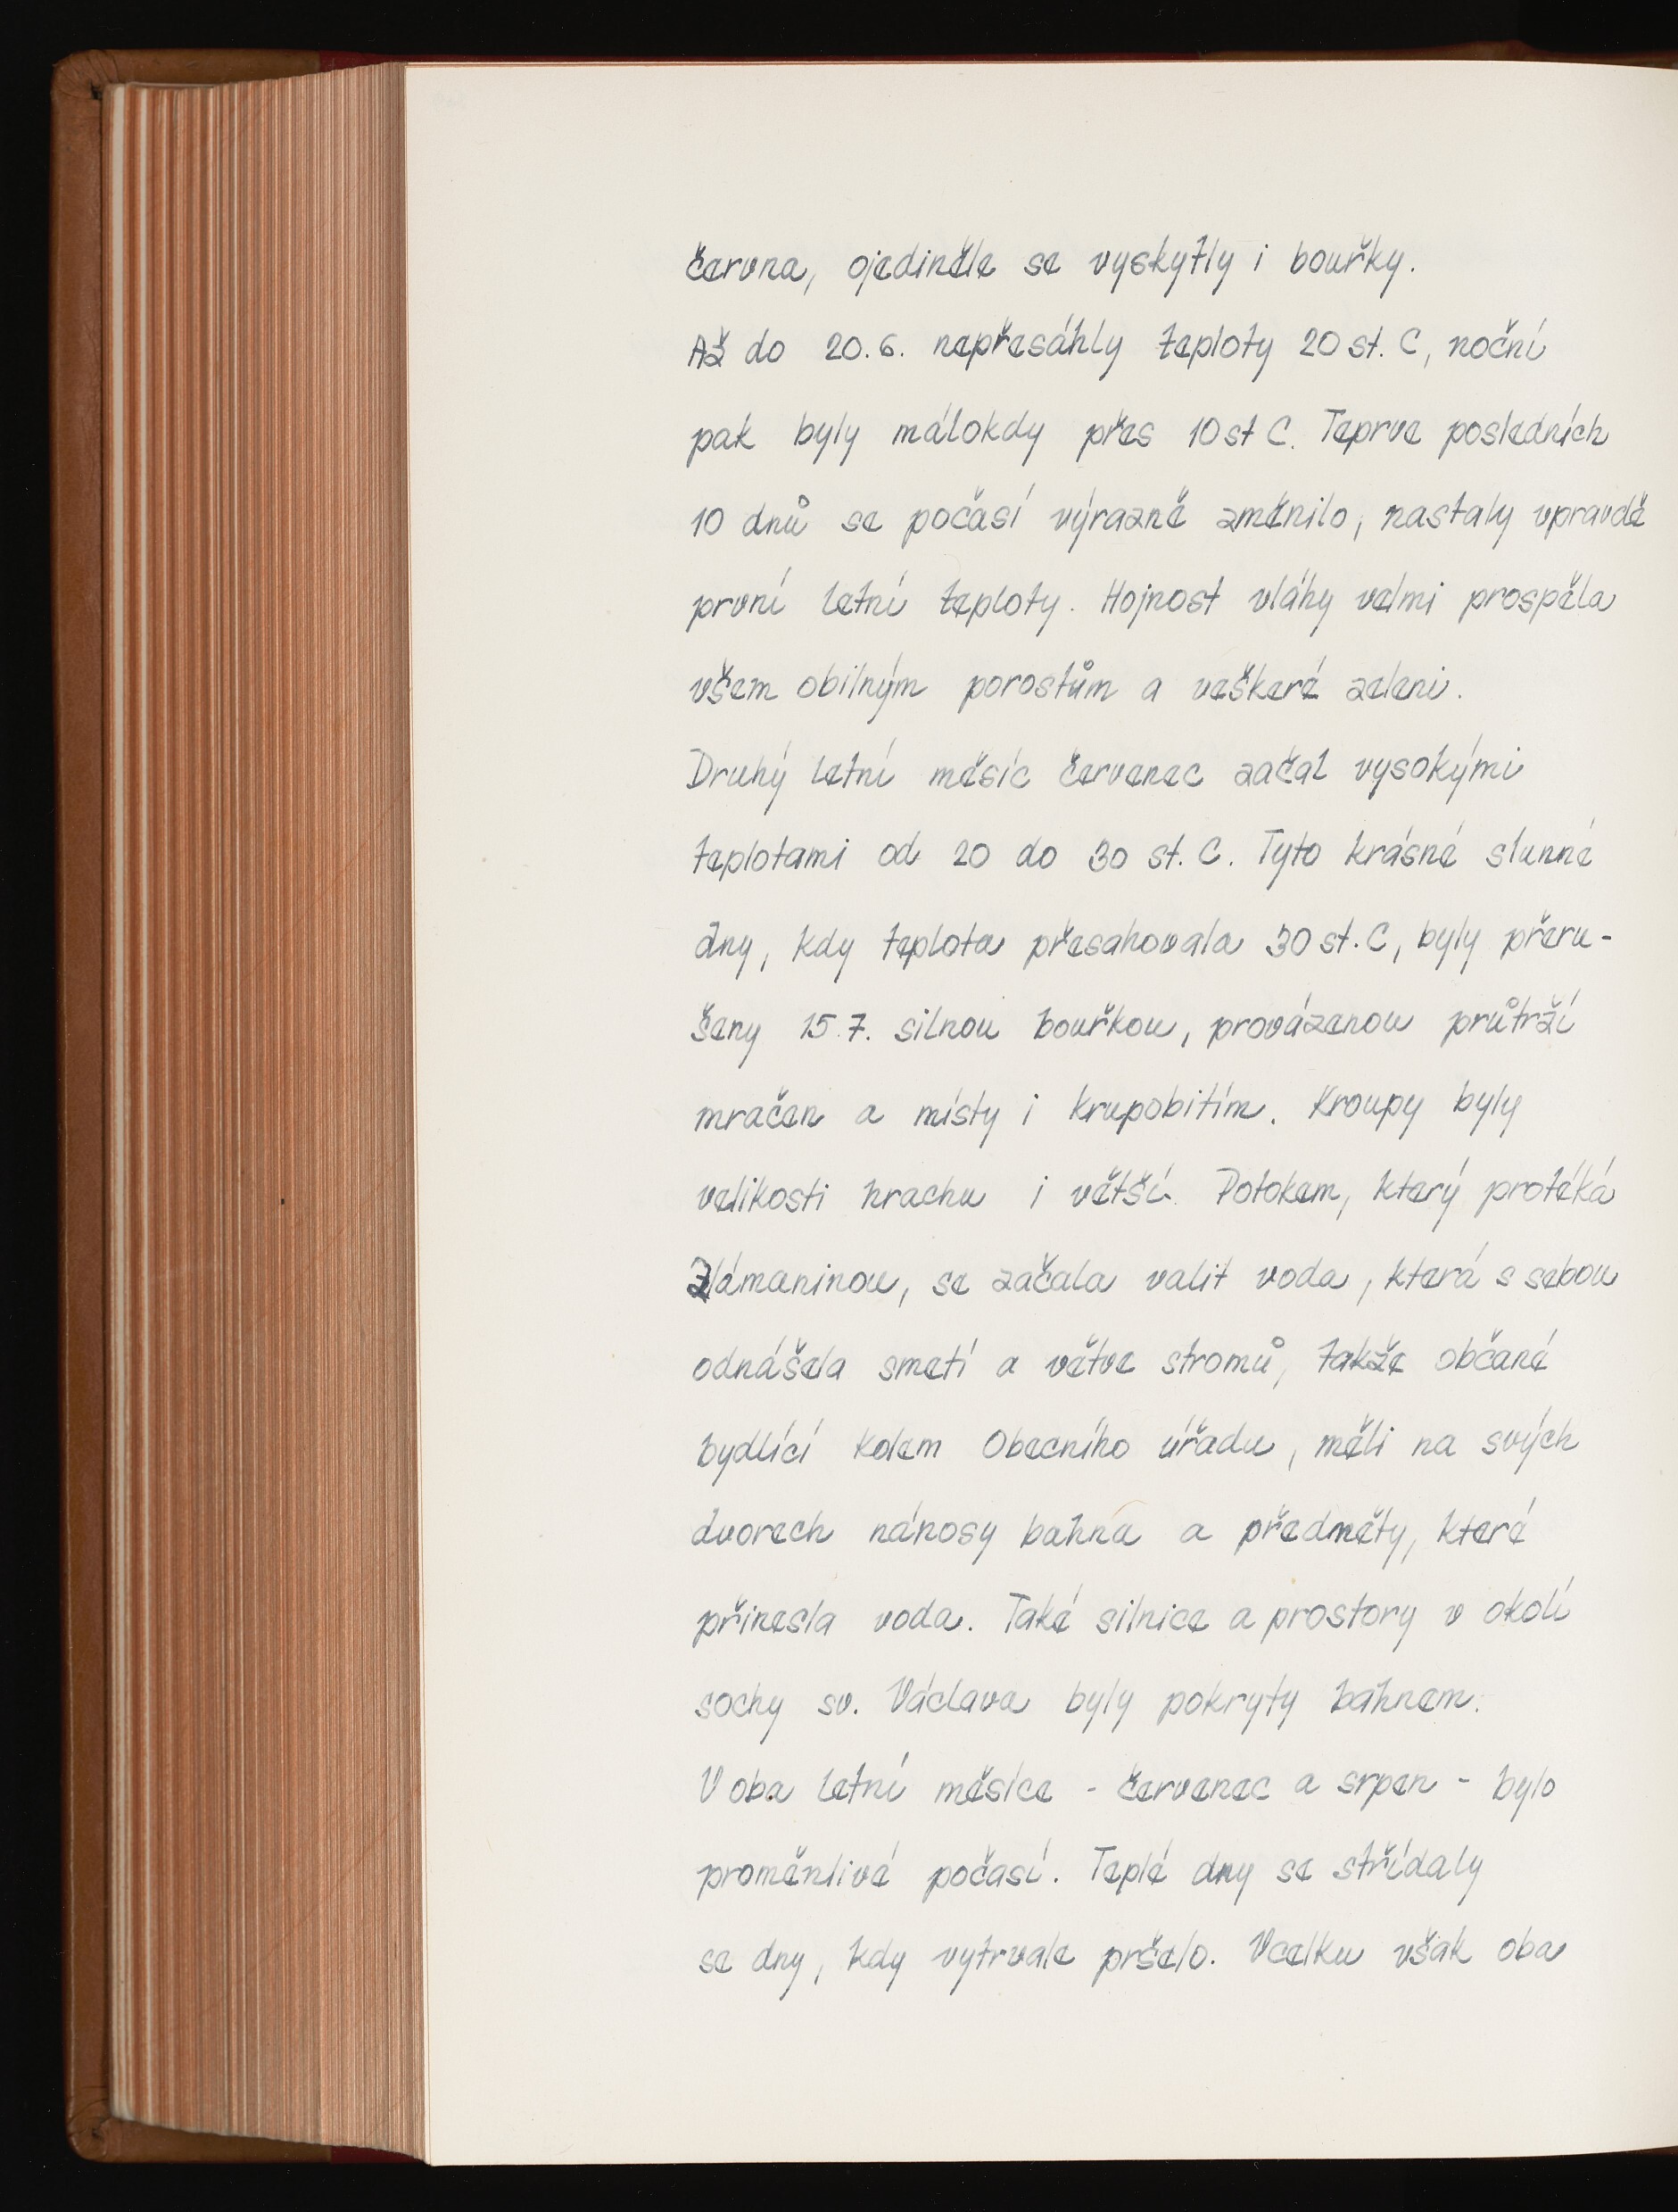 června, ojediněle se vyskytly i bouřky.
Až do 20.6. nepřesáhly teploty 20 st. C, noční
pak byly málokdy přes 10 st C. Teprve posledních
10 dnů se počasí výrazně změnilo, nastaly vpravdě
první letní teploty. Hojnost vláhy velmi prospěla
všem obilným porostům a veškeré zeleni.
Druhý letní měsíc červenec začal vysokými
teplotami od 20 do 30 st. C. Tyto krásné slunné
dny, kdy teplota přesahovala 30 st. C, byly přeru-
šeny 15.7. silnou bouřkou, provázenou průtrží
mračen a místy i krupobitím. Kroupy byly
velikosti hrachu i větší. Potokem, který protéká
Zlámaninou, se začala valit voda, která s sebou
odnášela smetí a větve stromů, takže občané
bydlící kolem Obecního úřadu, měli na svých
dvorech nánosy bahna a předměty, které
přinesla voda. Také silnice a prostory v okolí
sochy sv. Václava byly pokryty bahnem.
V oba letní měsíce - červenec a srpen - bylo
proměnlivé počasí. Teplé dny se střídaly
se dny, kdy vytrvale pršelo. Vcelku však oba